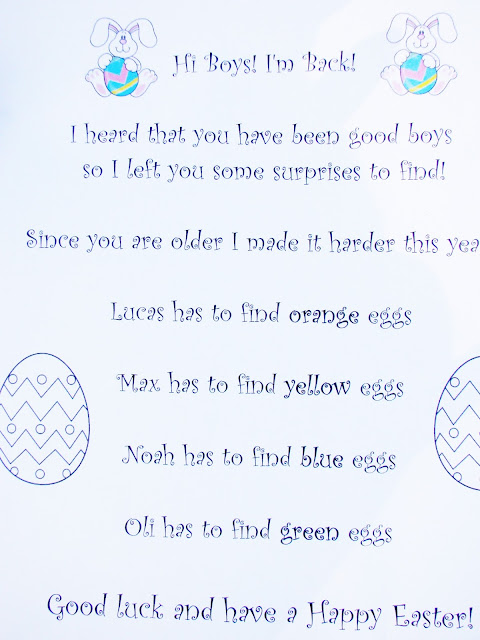 Hi Boys! I'm Back!
I heard that you have been good boys
so I left you some surprises to find!
Since you are older I made it harder this yea
Lucas has to find orange eggs
Max has to find yellow eggs
Noah has to find blue eggs
Oli has to find green eggs
Good luck and have a Happy Easter!